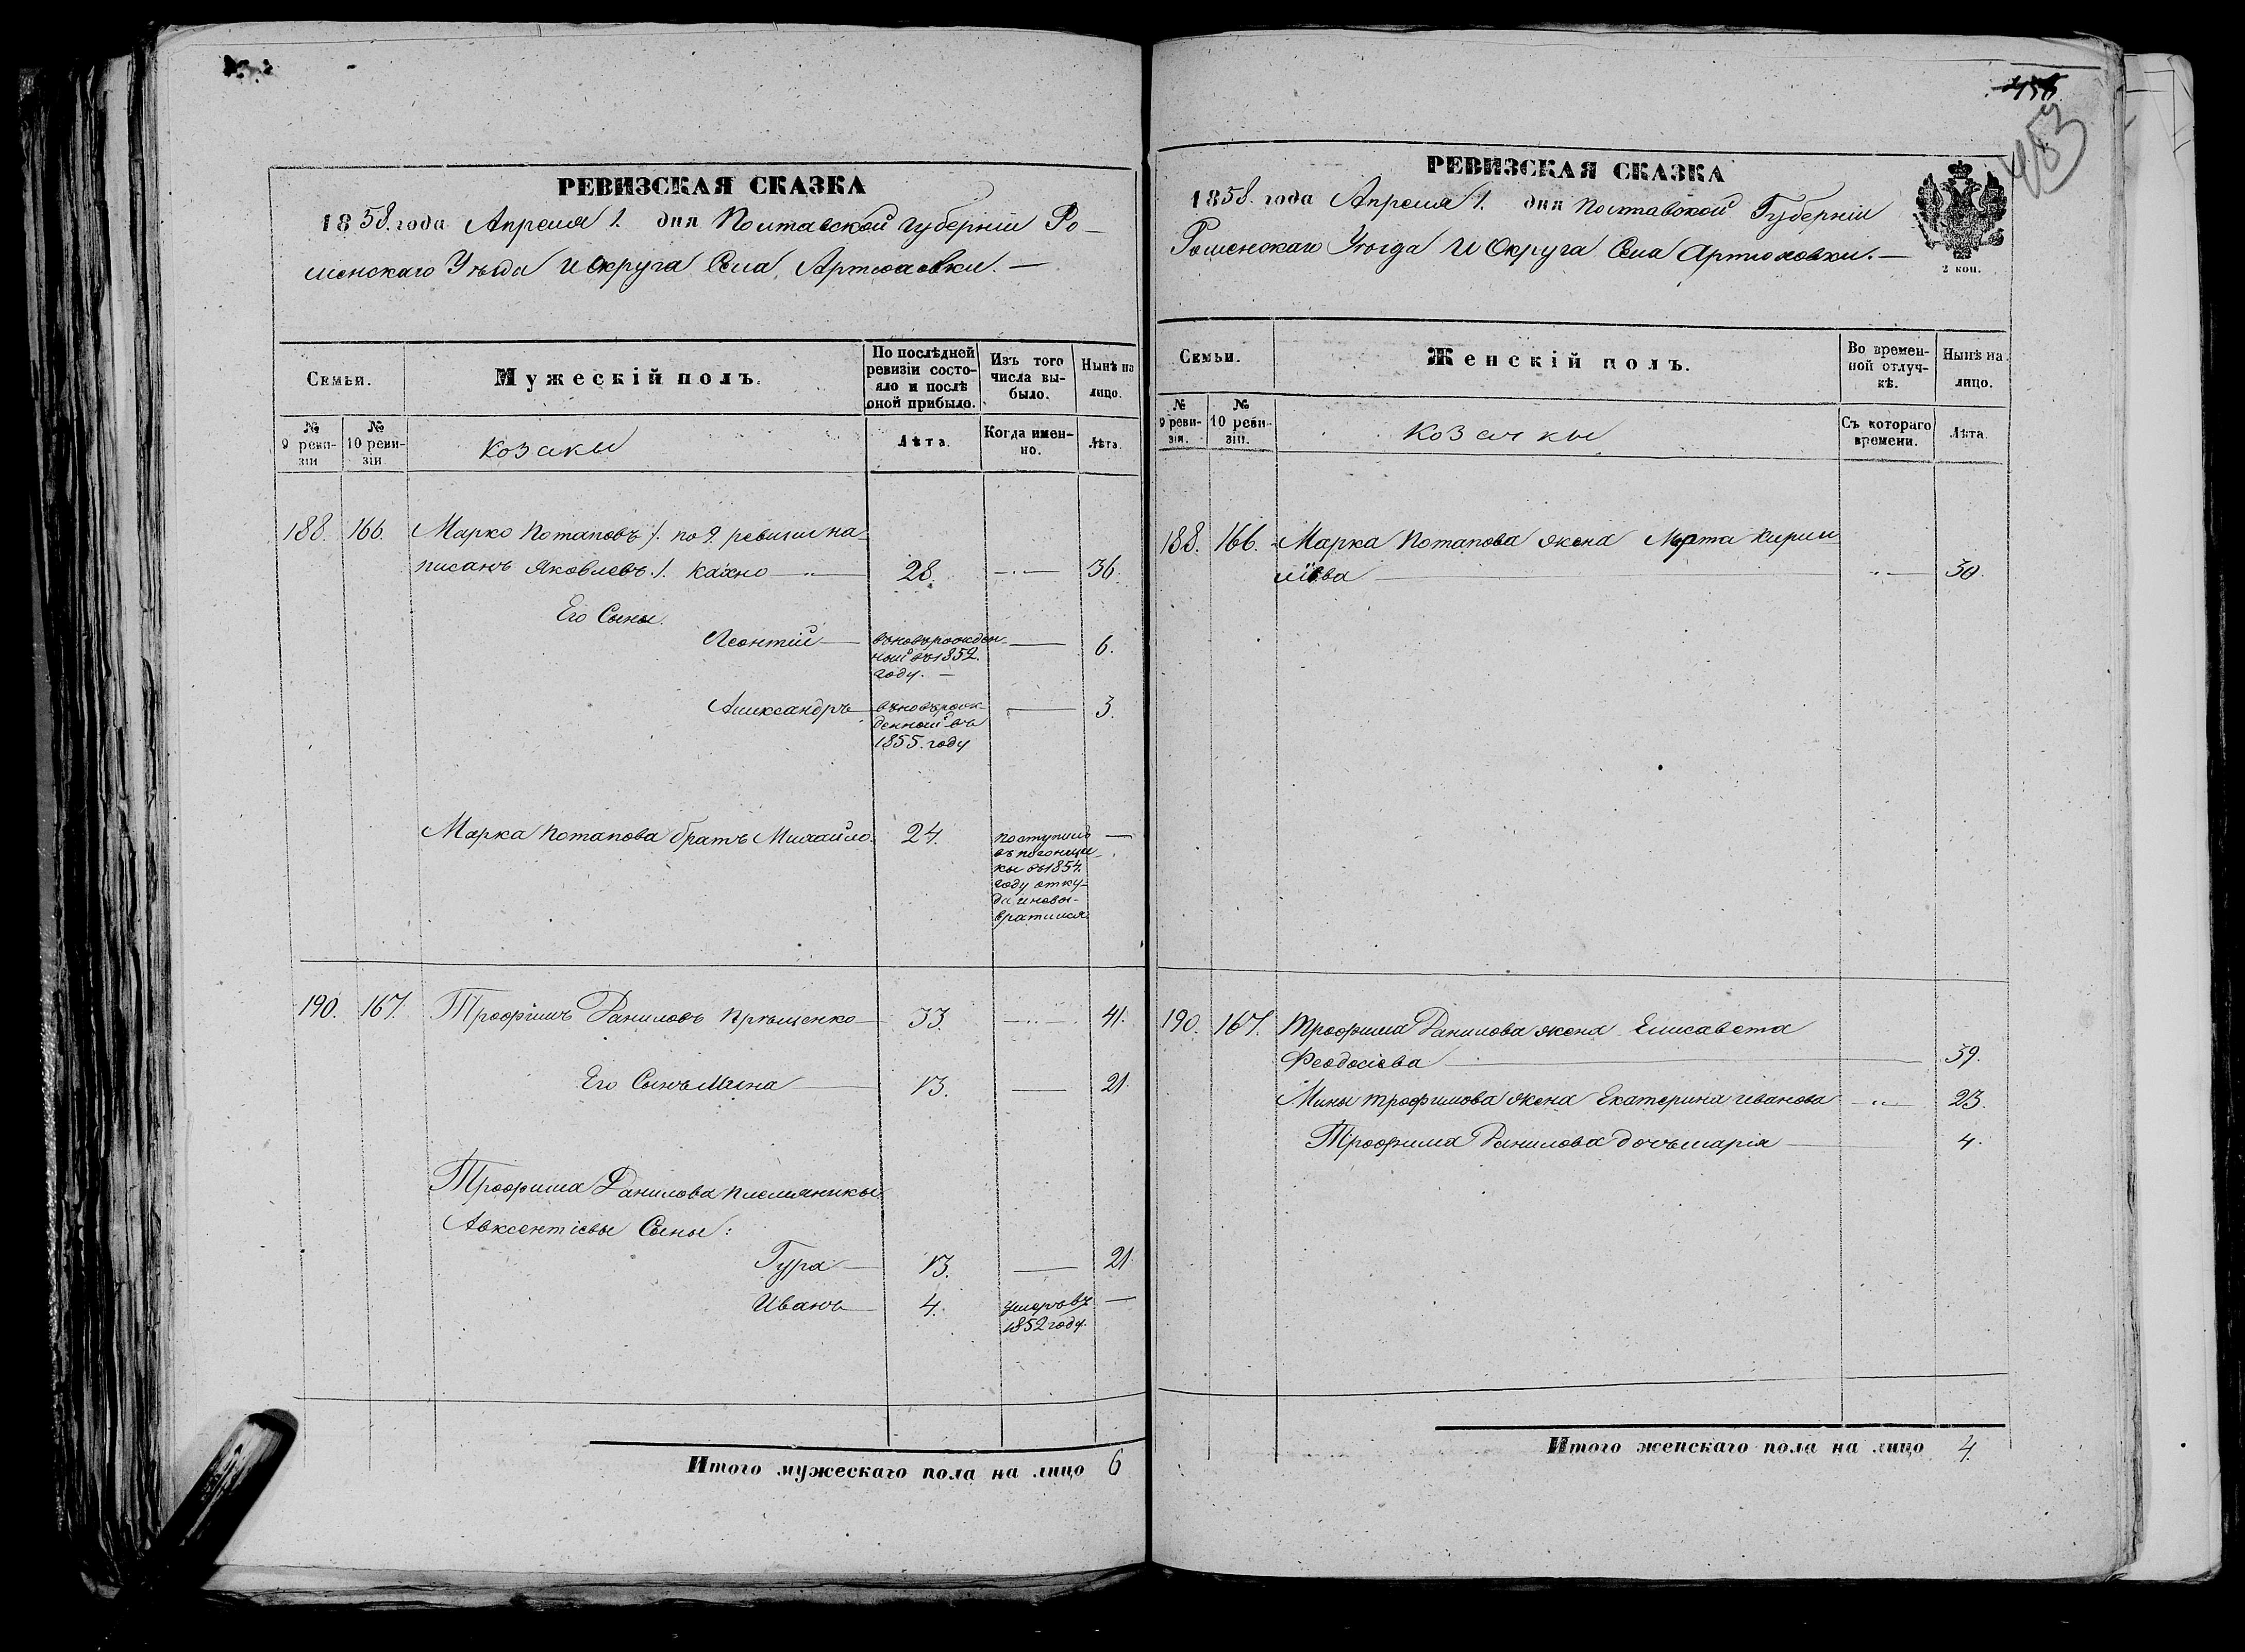 РЕВИЗСКАЯ СКАЗКА
1858. года Апреля 1. дня Полтавской Губерніи Ро-
менскаго Уѣзда и Округа Села Артюховки. —
Семьи.
Мужескій полъ.
По послѣдней ревизіи состо-яло и послѣ оной прибыло.
Изъ того числа вы-было.
Нынѣ на лицо.
№ 9 реви-зіи
№ 10 реви-зіи
Козаки
Лѣта.
Когда имен-но.
Лѣта.
188. 166. Марко Потаповъ /. по 9. ревизіи на-
писанъ Яковлевъ ./. Кахно 28. 36.
Его Сыны.
Леонтій — вновърожден-
ный въ 1852.
году. — 6.
Александръ — вновърож-
денный въ
1855. году 3.
Марка Потапова братъ Михайло. 24. Поступилъ
въ погонщи-
ки въ 1854.
году отку-
да и невоз-
вратился —
190. 167. Трофимъ Даниловъ Прищенко — 33. 41.
Его Сынъ Мина — 13. — 21.
Трофима Данилова племянники
Авксентіевы Сыны:
Гура — 13. — 21.
Иванъ — 4. умеръ въ
1852 году. —
Итого мужескаго пола на лицо 6
453
РЕВИЗСКАЯ СКАЗКА
1858. года Апреля 1. дня Полтавской Губерніи
Роменскаго Уѣзда и Округа Села Артюховки. —
2 коп.
Семьи.
Женскій полъ.
Во времен-ной отлуч-кѣ.
Нынѣ на лицо.
№ 9 реви-зіи.
№ 10 реви-зіи.
Козачки
Съ котораго времени.
Лѣта.
188. 166. Марка Потапова жена Марта Кирил-
лѣва — 30.
190. 167. Трофима Данилова жена Елисавета
Феодосіева — 39.
Мины Трофимова жена Екатерина Иванова 23.
Трофима Данилова дочь Марія — 4.
Итого женскаго пола на лицо 4.